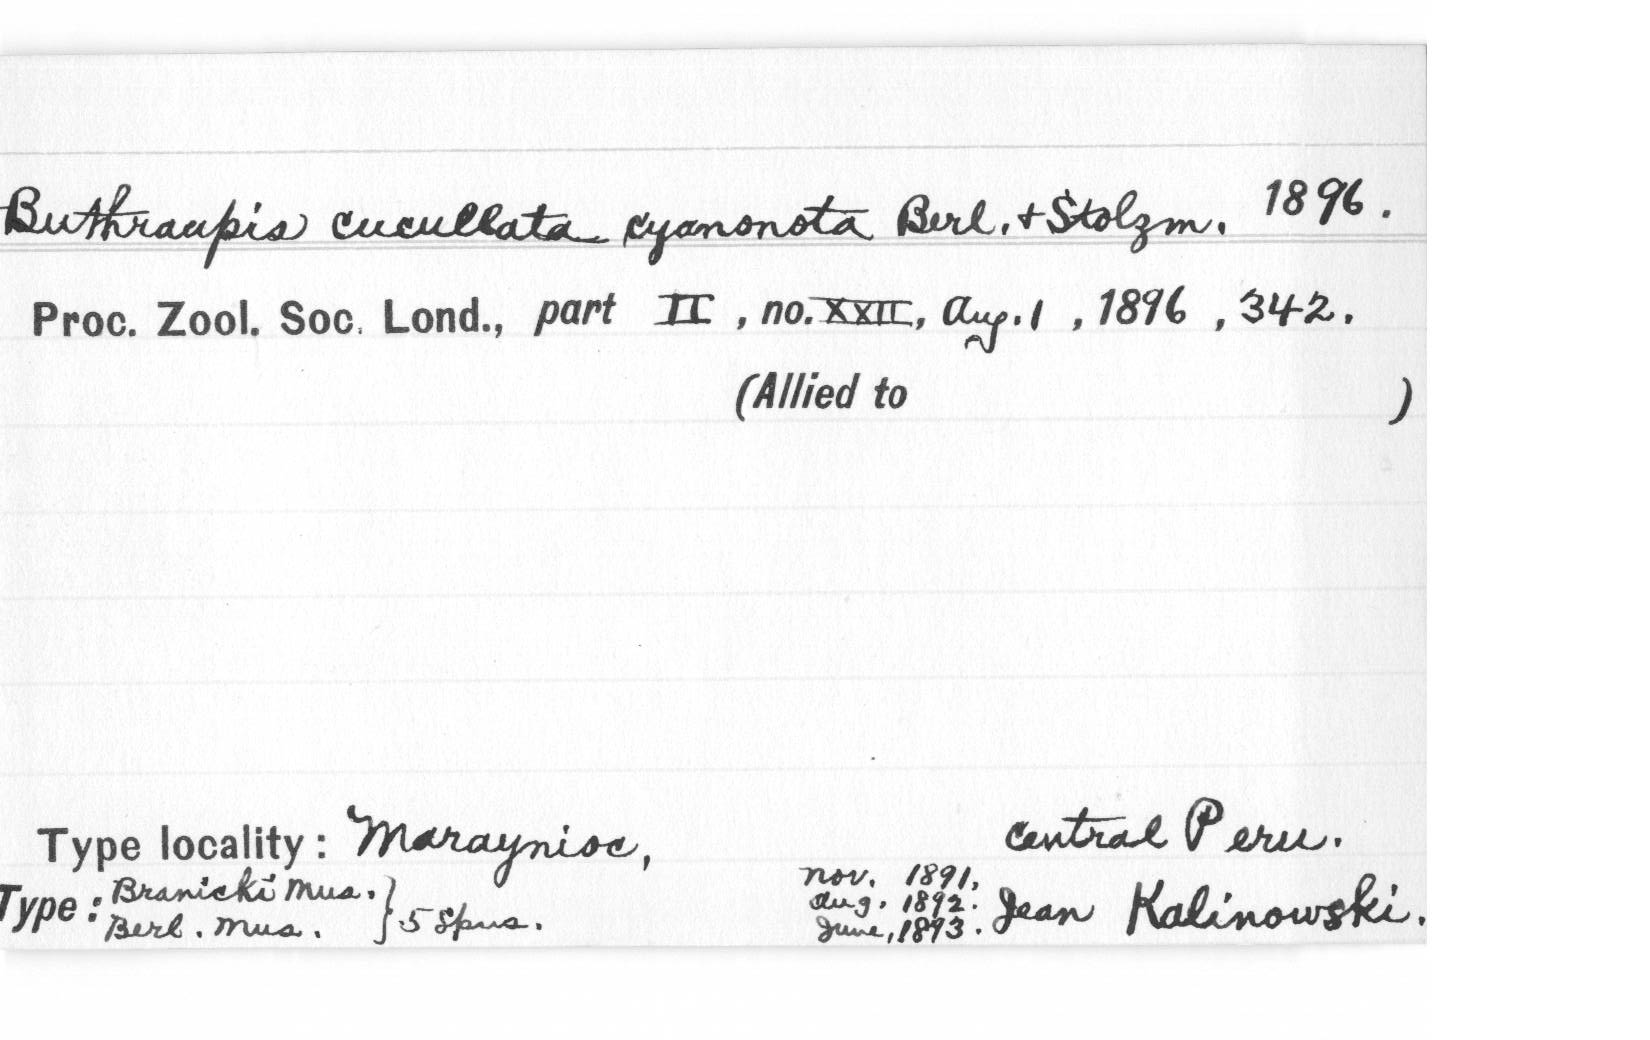 Buthraupis cucullata cyanonota Berl. + Stolzm. 1896.
Proc. Zool. Soc. Lond., part II, no. XXII, Aug. 1, 1896, 342.
(Allied to )
Type locality: Maraynioc, central Peru.
Type: Branicki Mus. } 5 spns. Nov. 1891, Jean Kalinowski.
Berl. Mus. Aug. 1892.
June, 1893.